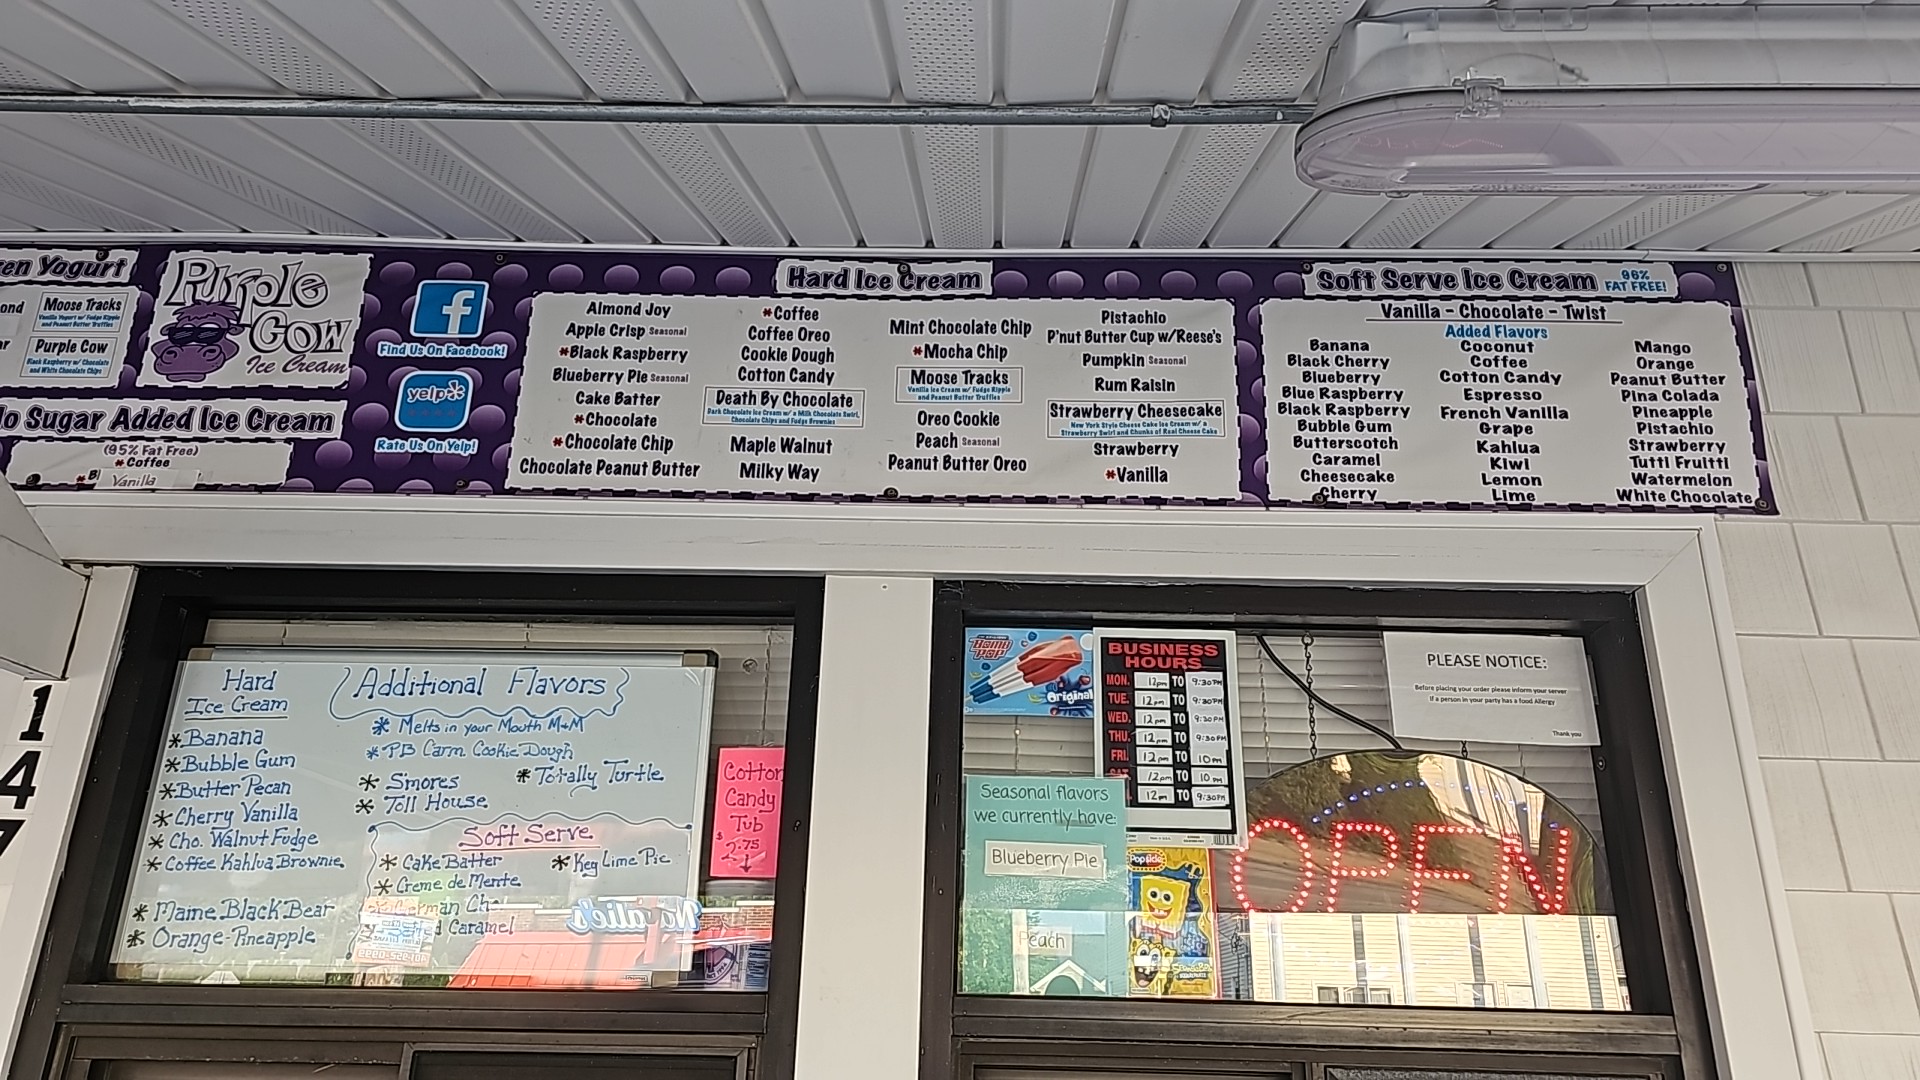 en Yogurt
ond
Moose Tracks
Vanilla Yogurt w/ Fudge Ripple
and Peanut Butter Truffles
ar
Purple Cow
Black Raspberry w/ Chocolate
and White Chocolate Chips
o Sugar Added Ice Cream
(95% Fat Free)
*Coffee
*B
Vanilla
Purple
Cow
Ice Cream
Find Us On Facebook!
yelp
Rate Us On Yelp!
Hard Ice Cream
Almond Joy
Apple Crisp Seasonal
*Black Raspberry
Blueberry Pie Seasonal
Cake Batter
*Chocolate
*Chocolate Chip
Chocolate Peanut Butter
*Coffee
Coffee Oreo
Cookie Dough
Cotton Candy
Death By Chocolate
Dark Chocolate Ice Cream w/ a Milk Chocolate Swirl,
Chocolate Chips and Fudge Brownies
Maple Walnut
Milky Way
Mint Chocolate Chip
*Mocha Chip
Moose Tracks
Vanilla Ice Cream w/ Fudge Ripple
and Peanut Butter Truffles
Oreo Cookie
Peach Seasonal
Peanut Butter Oreo
Pistachio
P'nut Butter Cup w/Reese's
Pumpkin Seasonal
Rum Raisin
Strawberry Cheesecake
New York Style Cheese Cake Ice Cream w/ a
Strawberry Swirl and Chunks of Real Cheese Cake
Strawberry
*Vanilla
Soft Serve Ice Cream
96%
FAT FREE!
Vanilla - Chocolate - Twist
Added Flavors
Banana
Black Cherry
Blueberry
Blue Raspberry
Black Raspberry
Bubble Gum
Butterscotch
Caramel
Cheesecake
Cherry
Coconut
Coffee
Cotton Candy
Espresso
French Vanilla
Grape
Kahlua
Kiwi
Lemon
Lime
Mango
Orange
Peanut Butter
Pina Colada
Pineapple
Pistachio
Strawberry
Tutti Fruitti
Watermelon
White Chocolate
1
4
7
Hard
Ice Cream
* Banana
* Bubble Gum
* Butter Pecan
* Cherry Vanilla
* Cho. Walnut Fudge
* Coffee Kahlua Brownie
* Maine Black Bear
* Orange-Pineapple
Additional Flavors
* Melts in your Mouth M&M
* PB Carm Cookie Dough
* S'mores
* Totally Turtle
* Toll House
Soft Serve
* Cake Batter
* Key Lime Pie
* Creme de Mente
German Cho
d Caramel
Cotton
Candy
Tub
$2.75
BOMB
POP
Original
BUSINESS
HOURS
MON. 12pm TO 9:30PM
TUE. 12pm TO 9:30PM
WED. 12pm TO 9:30PM
THU. 12pm TO 9:30PM
FRI. 12pm TO 10PM
SAT. 12pm TO 10PM
12pm TO 9:30PM
PLEASE NOTICE:
Before placing your order please inform your server
if a person in your party has a food Allergy
Thank you
Seasonal flavors
we currently have:
Blueberry Pie
Peach
Popsicle
OPEN